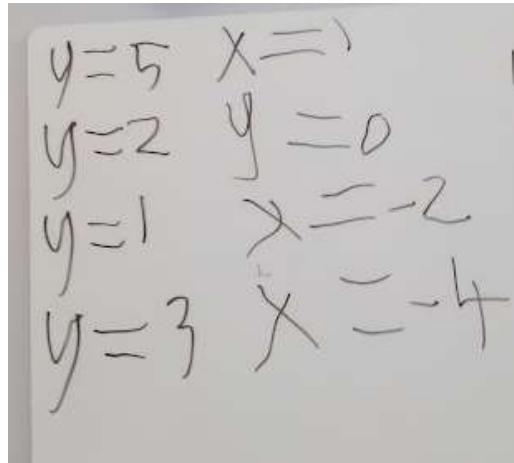 y=5 x=1
y=2 y=0
y=1 x=-2
y=3 x=-4